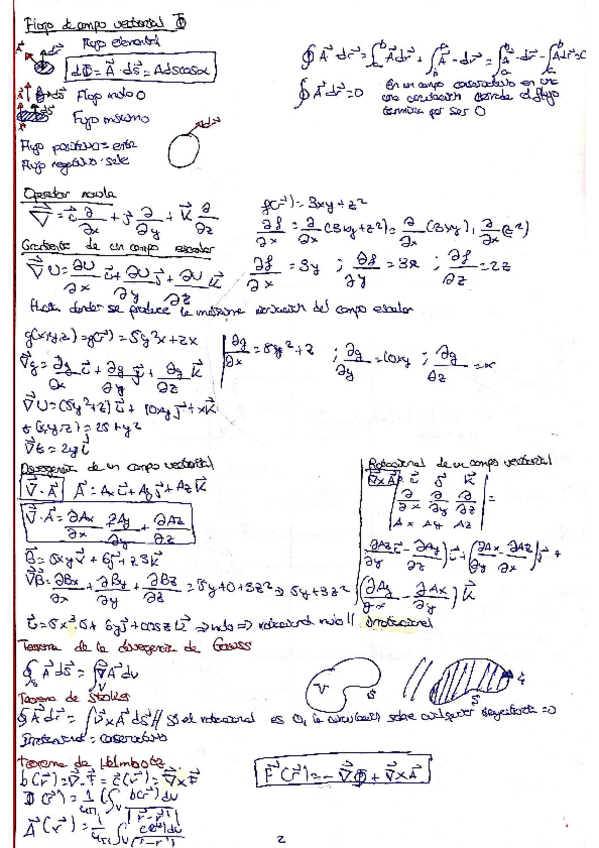 Flujo de campo vectorial Φ
Flujo elemental
dΦ = A⃗ · ds⃗ = Adscosα
Flujo nulo 0
Flujo máximo
Flujo positivo = entra
Flujo negativo = sale
∮ A⃗ · dr⃗ = ∫ A⃗dr⃗ + ∫ A⃗ · dr⃗ = ∫ A⃗ · dr⃗ - ∫ A⃗dr⃗ = 0
∮ A⃗ dr⃗ = 0
En un campo conservativo en una
una circulación donde el flujo
termina por ser 0
Operador nabla
∇⃗ = i⃗ ∂/∂x + j⃗ ∂/∂y + k⃗ ∂/∂z
f(r⃗) = 3xy + z²
∂f/∂x = ∂/∂x (3xy + z²) = ∂/∂x (3xy) + ∂/∂x (z²)
∂f/∂x = 3y ; ∂f/∂y = 3x ; ∂f/∂z = 2z
Gradiente de un campo escalar
∇⃗U = ∂U/∂x i⃗ + ∂U/∂y j⃗ + ∂U/∂z k⃗
Hacia donde se produce la máxima variación del campo escalar
g(x,y,z) = g(r⃗) = 5y²x + zx
∂g/∂x = 5y² + z ; ∂g/∂y = 10xy ; ∂g/∂z = x
∇⃗g = ∂g/∂x i⃗ + ∂g/∂y j⃗ + ∂g/∂z k⃗
∇⃗U = (5y² + z) i⃗ + 10xy j⃗ + x k⃗
t(x,y,z) = 25 + y²
∇⃗t = 2y j⃗
Divergencia de un campo vectorial
∇⃗ · A⃗ A⃗ = Ax i⃗ + Ay j⃗ + Az k⃗
∇⃗ · A⃗ = ∂Ax/∂x + ∂Ay/∂y + ∂Az/∂z
B⃗ = 5xy i⃗ + 6 j⃗ + z3 k⃗
∇⃗B⃗ = ∂Bx/∂x + ∂By/∂y + ∂Bz/∂z = 5y + 0 + 3z² ⇒ 5y + 3z²
Rotacional de un campo vectorial
∇⃗xA⃗ = | i⃗ j⃗ k⃗
∂/∂x ∂/∂y ∂/∂z | =
Ax Ay Az
= (∂Az/∂y - ∂Ay/∂z) i⃗ + (∂Ax/∂z - ∂Az/∂x) j⃗ +
(∂Ay/∂x - ∂Ax/∂y) k⃗
⇒ nulo ⇒ rotacional nulo // irrotacional
Teorema de la divergencia de Gauss
∮ A⃗ ds⃗ = ∫ ∇⃗A⃗ dv
V S
Teorema de Stokes
∮ A⃗ dr⃗ = ∫ ∇⃗xA⃗ ds⃗ // Si el rotacional es 0, la circulación sobre cualquier trayectoria = 0
Irrotacional = conservativo
Teorema de Helmholtz
b(r⃗) = ∇⃗ · F⃗ = c⃗(r⃗) = ∇⃗xF⃗
F⃗(r⃗) = -∇⃗Φ + ∇⃗xA⃗
Φ(r⃗) = 1/4π ∫ b(r⃗')dv/|r⃗ - r⃗'|
A⃗(r⃗) = 1/4π ∫ c(r⃗')dv/|r⃗ - r⃗'|
2